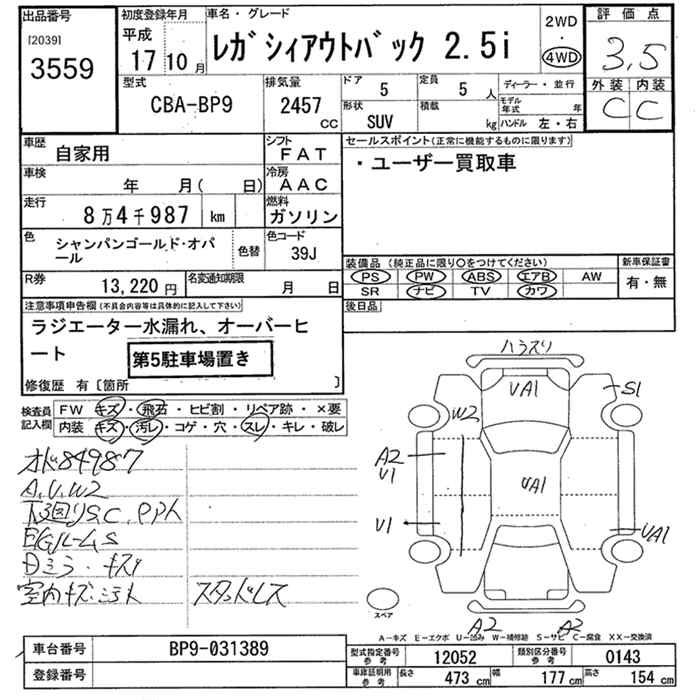 出品番号 初度登録年月 車名・グレード 2WD 評価点
[2039] 平成 ・
3559 17 10月 レガシィアウトバック 2.5i 4WD 3,5
型式 排気量 ドア 定員 ディーラー・並行 外装 内装
CBA-BP9 2457 5 5 人 モデル年式 年 C C
CC 形状 SUV 積載 kg ハンドル 左・右
車歴 自家用 シフト FAT セールスポイント(正常に機能するものに限ります)
車検 年 月( 日) 冷房 AAC ・ユーザー買取車
走行 8万4千987 km 燃料 ガソリン
色 シャンパンゴールド・オパール 色替 色コード 39J
装備品(純正品に限り〇をつけてください) 新車保証書
R券 13,220円 名変通知期限 月 日 PS PW ABS エアB AW 有・無
SR ナビ TV カワ
注意事項申告欄(不具合内容等は具体的に記入して下さい) 後日品
ラジエーター水漏れ、オーバーヒ
ート 第5駐車場置き
修復歴 有〔箇所 〕
検査員記入欄 FW キズ・飛石・ヒビ割・リペア跡・×要
内装 キズ・汚レ・コゲ・穴・スレ・キレ・破レ
ハラズリ
VA1 S1
W2
A2
V1 VA1
V1 VA1
スペア
A2 A2
オド84987
A,U,W2
下廻りS.C.
E/Gルーム S
Dミラーキズ
室内キズ・汚れ スタッドレス
A-キズ E-エクボ U-凹み W-補修跡 S-サビ C-腐食 XX-交換済
車台番号 BP9-031389 型式指定番号 参考 12052 類別区分番号 参考 0143
登録番号 車庫証明用 参考 長さ 473 cm 幅 177 cm 高さ 154 cm